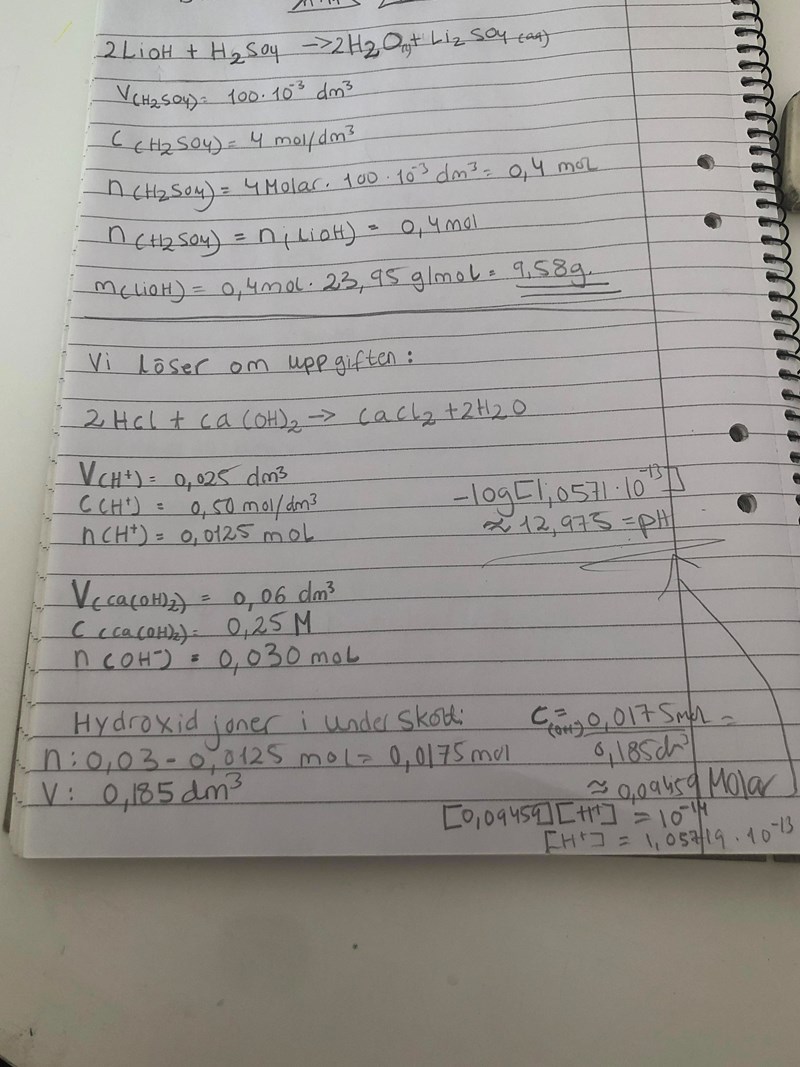 2LiOH + H₂SO₄ → 2H₂O(l) + Li₂SO₄ (aq)
V(H₂SO₄) = 100 · 10⁻³ dm³
C(H₂SO₄) = 4 mol/dm³
n(H₂SO₄) = 4 Molar · 100 · 10⁻³ dm³ = 0,4 mol
n(H₂SO₄) = n(LiOH) = 0,4mol
m(LiOH) = 0,4mol · 23,95 g/mol = 9,58g.
Vi löser om uppgiften:
2HCl + Ca(OH)₂ → CaCl₂ + 2H₂O
V(H⁺) = 0,025 dm³
C(H⁺) = 0,50 mol/dm³
n(H⁺) = 0,0125 mol
-log[1,0571 · 10⁻¹³]
≈ 12,975 = pH
V(Ca(OH)₂) = 0,06 dm³
C(Ca(OH)₂) = 0,25 M
n(OH⁻) = 0,030 mol
Hydroxid joner i underskott:
n: 0,03 - 0,0125 mol = 0,0175 mol
V: 0,185 dm³
C(OH) = 0,0175mol =
0,185d³
≈ 0,09459 Molar
[0,09459][H⁺] = 10⁻¹⁴
[H⁺] = 1,05719 · 10⁻¹³